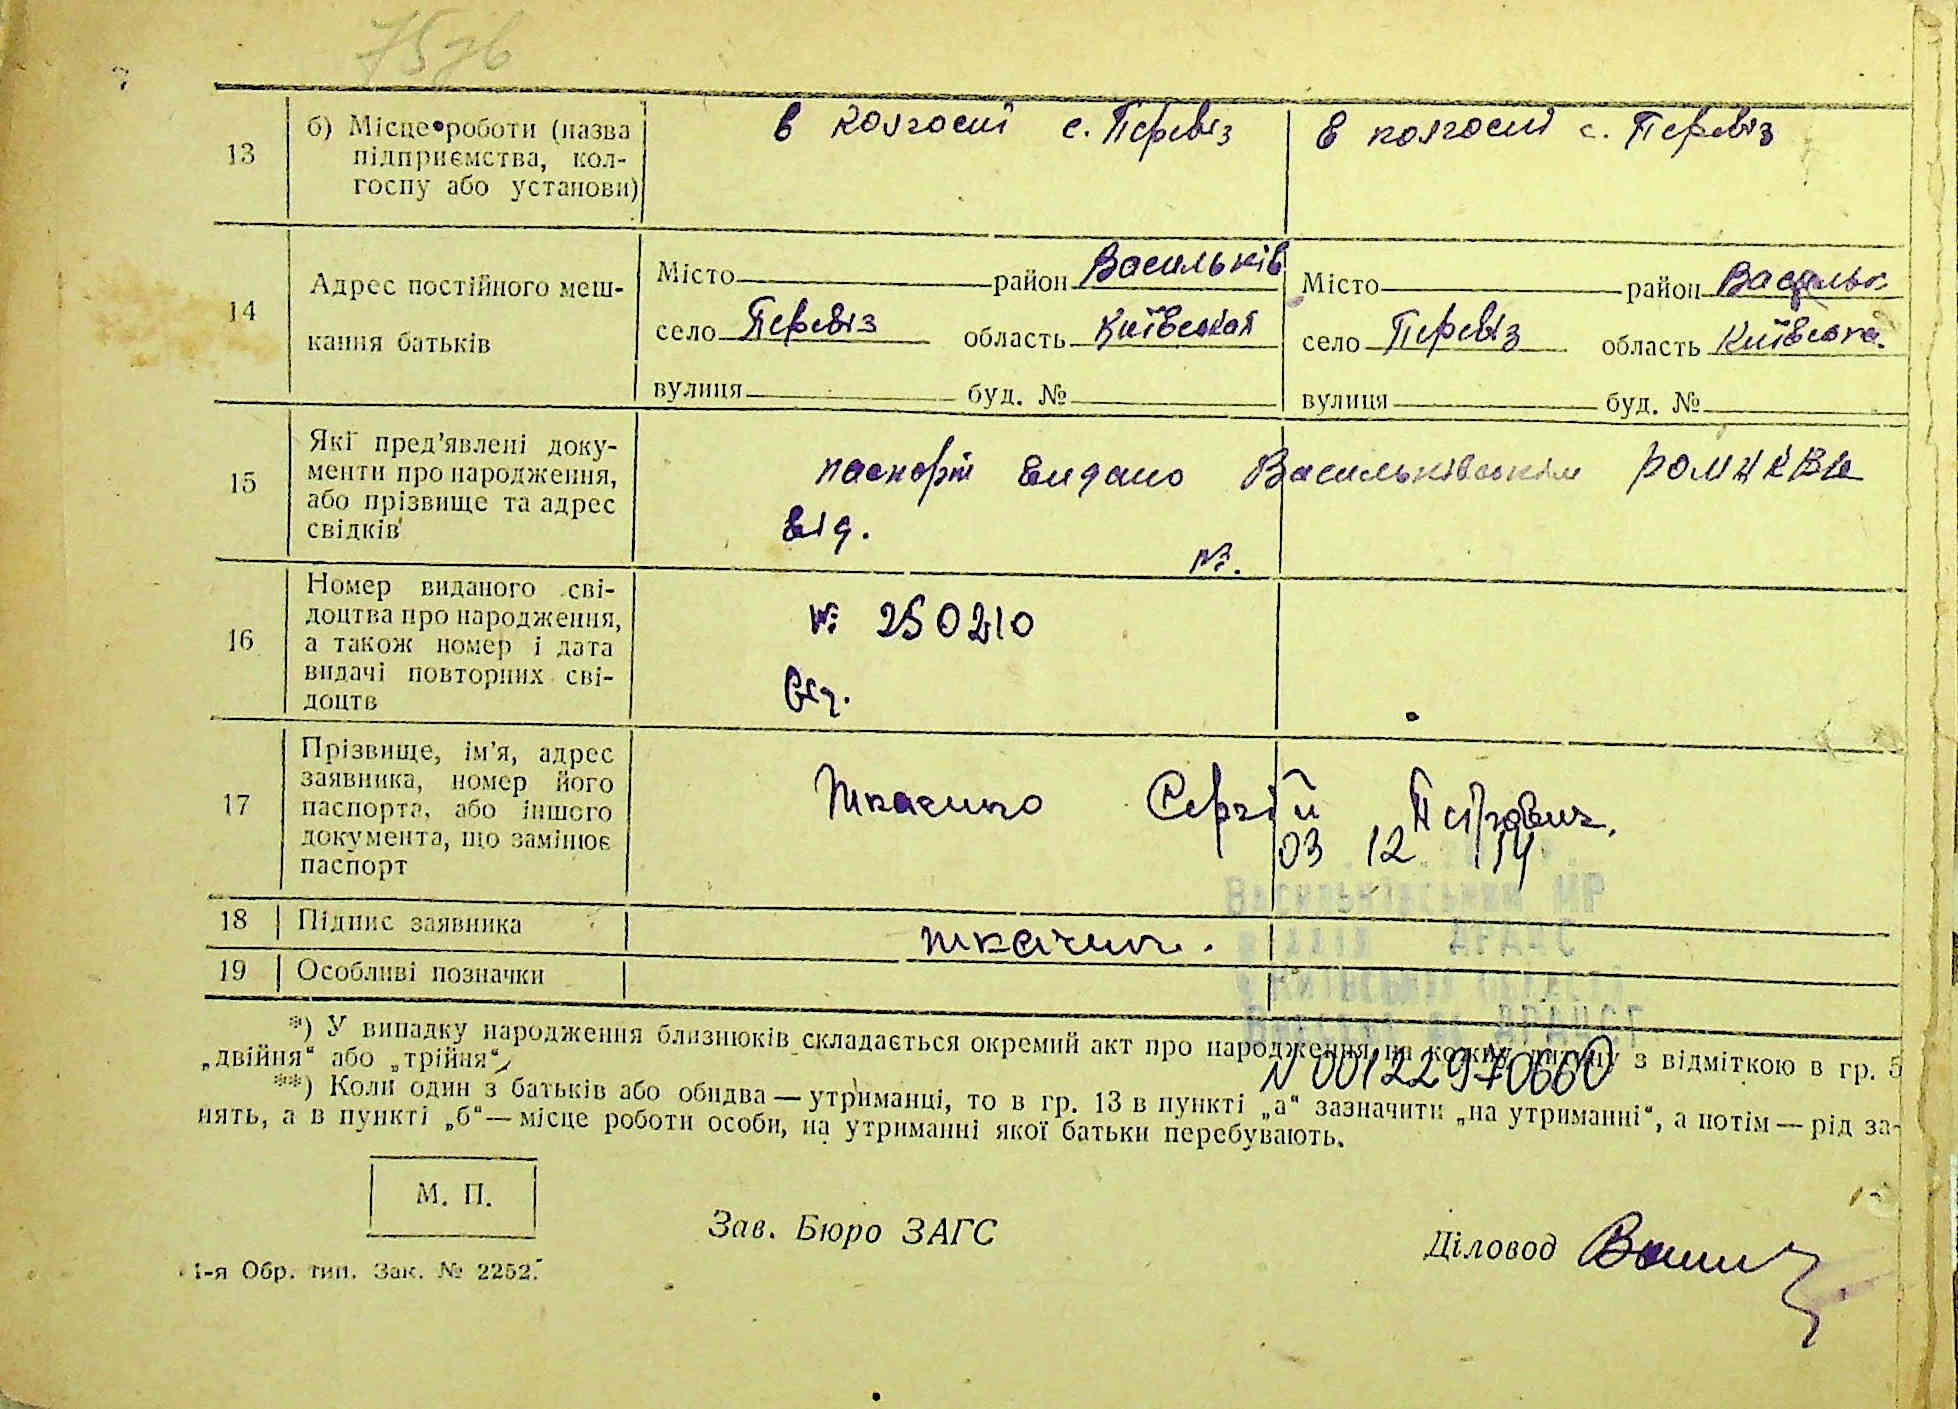 75зв
13
б) Місце роботи (назва
підприємства, кол-
госпу або установи)
в колгоспі с. Перевіз
в колгоспі с. Перевіз
14
Адрес постійного меш-
кання батьків
Місто район Васильків
село Перевіз область Київская
вулиця буд. №
Місто район Васильк
село Перевіз область Київська.
вулиця буд. №
15
Які пред’явлені доку-
менти про народження,
або прізвище та адрес
свідків
паспорт видано Васильківским
від.
№.
16
Номер виданого сві-
доцтва про народження,
а також номер і дата
видачі повторних сві-
доцтв
№ 250210
17
Прізвище, ім’я, адрес
заявника, номер його
паспорта, або іншого
документа, що замінює
паспорт
Сергій Петрович.
03 12
Васильківський МР
ДРАЦС
18
Підпис заявника
19
Особливі позначки
*) У випадку народження близнюків складається окремий акт про народження на кожну дитину з відміткою в гр. 5
„двійня“ або „трійня“
N 00122970660
**) Коли один з батьків або обидва — утриманці, то в гр. 13 в пункті „а“ зазначити „на утриманні“, а потім — рід за-
нять, а в пункті „б“ — місце роботи особи, на утриманні якої батьки перебувають.
М. П.
Зав. Бюро ЗАГС
Діловод
1-я Обр. тип. Зак. № 2252.